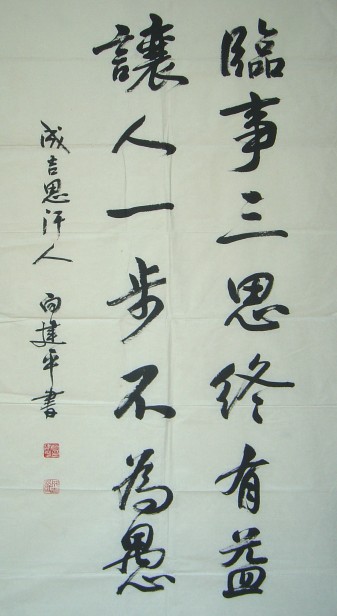 臨事三思終有益
讓人一步不為愚
成吉思汗人 向建平書